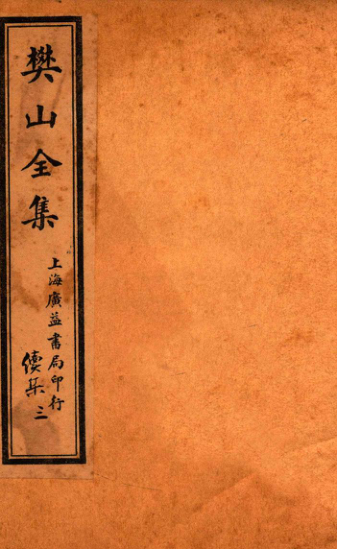 樊山全集
上海廣益書局印行
續集三